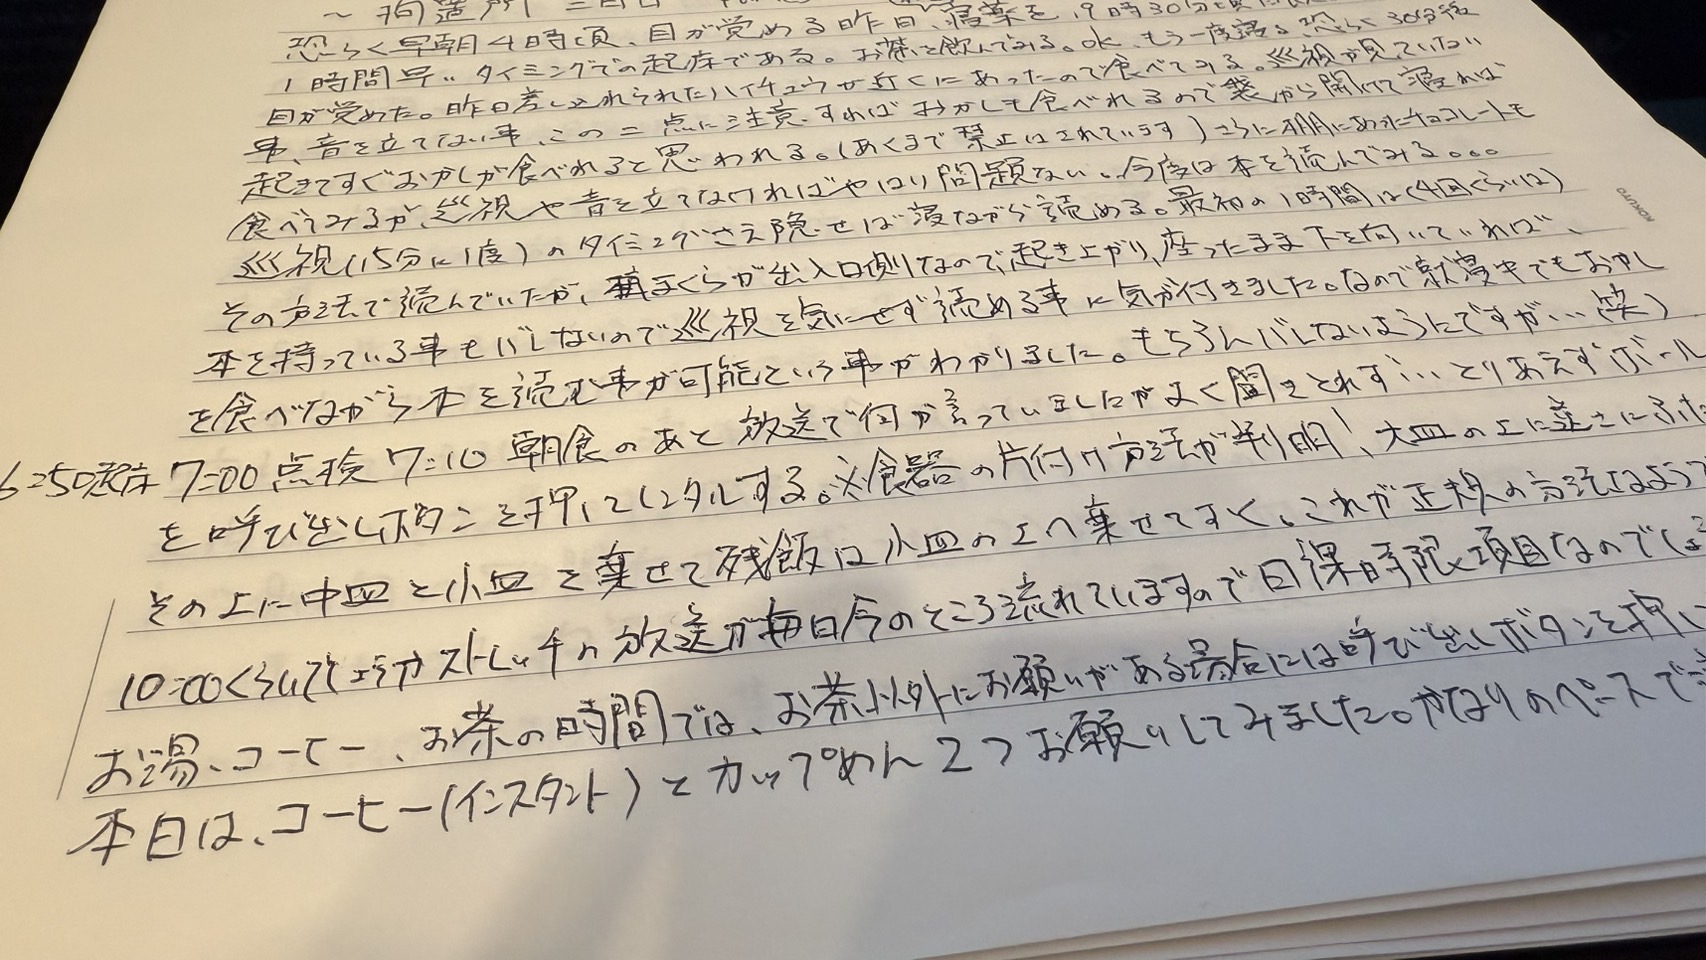 ～拘置所 二日目
恐らく早朝4時頃、目が覚める昨日、寝薬を19時30分頃に
1時間早いタイミングでの起床である。お茶を飲んでみる。OK、もう一度寝る恐らく30分後
目が覚めた。昨日差し入れられたハイチュウが近くにあったので食べてみる。巡視が見ていない
事、音を立てない事、この二点に注意すればおかしも食べれるので袋から開けて寝れば
起きてすぐおかしが食べれると思われる。(あくまで禁止はされています)さらに棚にあったチョコレートも
食べてみるが、巡視や音を立てなければやはり問題ない。今度は本を読んでみる。。。
巡視(15分に1度)のタイミングさえ隠せば寝ながら読める。最初の1時間は(4回くらいは)
その方法で読んでいたが、まくらが出入口側なので、起き上がり、座ったまま下を向いていれば、
本を持っている事もバレないので巡視を気にせず読める事に気が付きました。なので就寝中でもおかし
を食べながら本を読む事が可能という事がわかりました。もちろんバレないようにですが…(笑)
6:50起床 7:00点検 7:10 朝食のあと放送で何か言っていましたがよく聞きとれず…とりあえずボール
を呼び出しボタンを押してレンタルする。※食器の片付け方法が判明! 大皿の上に逆さにふた
その上に中皿と小皿を乗せて残飯は小皿の上へ乗せてすく。これが正規の方法なよう
10:00くらいに ストレッチの放送が毎日今のところ流れていますので日課時限項目なのでしょ
お湯、コーヒー、お茶の時間では、お茶以外にお願いがある場合には呼び出しボタンを押し
本日は、コーヒー(インスタント)とカップめん2つお願いしてみました。かなりのペースで
KOKUYO